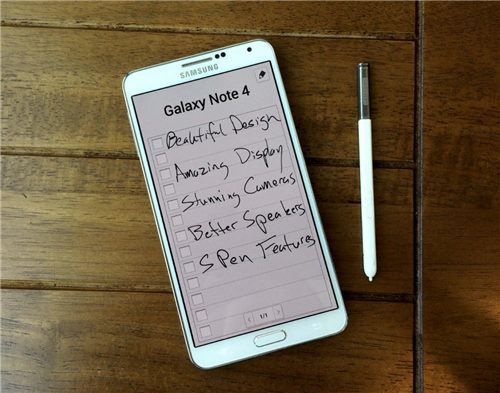 SAMSUNG
Galaxy Note 4
Beautiful Design
Amazing Display
Stunning Cameras
Better Speakers
SPen Features
1/1